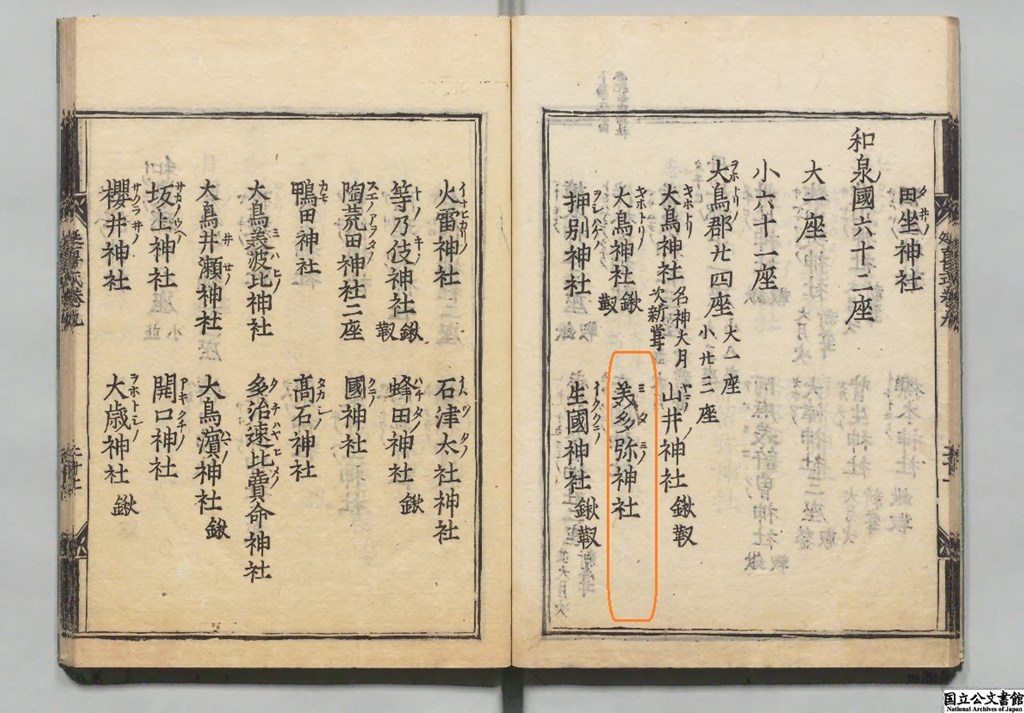 田坐神社
和泉國六十二座
大一座
小六十一座
大鳥郡廿四座 大一座 小廿三座
大鳥神社 名神大月次新甞
山井神社 鍬靫
大鳥神社 鍬靫
美多弥神社
押別神社
生國神社 鍬靫
火雷神社
石津太社神社
等乃伎神社 鍬靫
蜂田神社 鍬
陶荒田神社二座
國神社
鴨田神社
髙石神社
大鳥美波比神社
多治速比賣命神社
大鳥井瀬神社
大鳥濵神社 鍬
坂上神社
開口神社
櫻井神社
大歳神社 鍬
国立公文書館
National Archives of Japan